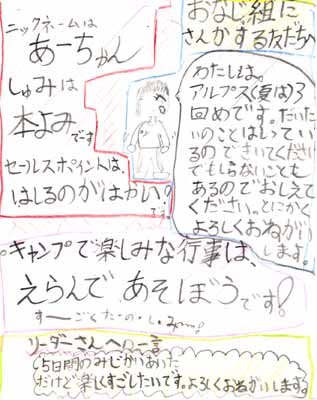 ニックネームは
あーちゃん
しゅみは
本よみです
セールスポイントは、
はしるのがはやい?です。
おなじ組に
さんかする友だちへ
わたしは。
アルプス(夏は)3
回めです。だいた
いのことはしってい
るのできいてください
でもしらないことも
あるのでおしえて
ください。とにかく
よろしくおねがい
します。
キャンプで楽しみな行事は、
えらんであそぼうです!
すーごくたのしみ
リーダーさんへの一言
5日間のみじかいあいた
だけど楽しくすごしたいです。よろしくおねがいします。